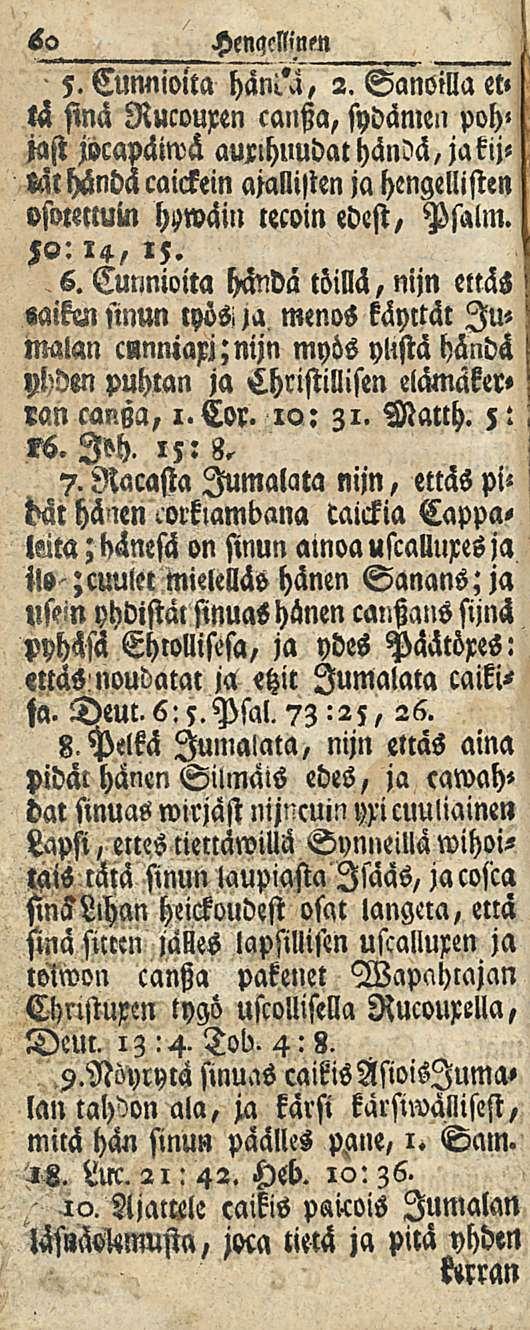 60 Hengellinen
5. Cunnioita händä, 2. Sanoilla et-
tä sinä Rucouxen canßa, sydämen poh-
jast jocapäiwä auxihuudat händä, ja kij-
tät händä caickein ajallisten ja hengellisten
osotettuin hywäin tecoin edest, Psalm.
50: 14, 15.
6. Cunnioita händä töillä, nijn ettäs
caiken sinun työs ja menos käyttät Ju-
malan cunniaxi; nijn myös ylistä händä
yhden puhtan ja Christillisen elämäker-
ran canßa, 1. Cor. 10: 31. Matth. 5:
16. Joh. 15: 8.
7. Racasta Jumalata nijn, ettäs pi-
dät hänen corkiambana caickia Cappa-
leita; hänesä on sinun ainoa uscalluxes ja
ilo; cuulet mielelläs hänen Sanans; ja
usein yhdistät sinuas hänen canßans sijnä
pyhäsä Ehtollisesa, ja ydes Päätöxes:
ettäs noudatat ja etzit Jumalata caiki-
sa. Deut. 6: 5. Psal. 73: 25, 26.
8. Pelkä Jumalata, nijn ettäs aina
pidät hänen Silmäis edes, ja cawah-
dat sinuas wirjäst nijncuin yxi cuuliainen
Lapsi, ettes tiettäwillä Synneillä wihoi-
tais tätä sinun laupiasta Isääs, ja cosca
sinä Lihan heickoudest osat langeta, että
sinä sitten jälles lapsillisen uscalluxen ja
toiwon canßa pakenet Wapahtajan
Christuxen tygö uscollisella Rucouxella,
Deut. 13: 4. Tob. 4: 8.
9. Nöyrytä sinuas caikis Asiois Juma-
lan tahdon ala, ja kärsi kärsiwällisest,
mitä hän sinun päälles pane, 1. Sam.
18. Luc. 21: 42. Heb. 10: 36.
10. Ajattele caikis paicois Jumalan
läsnäolemusta, joca tietä ja pitä yhden
kerran